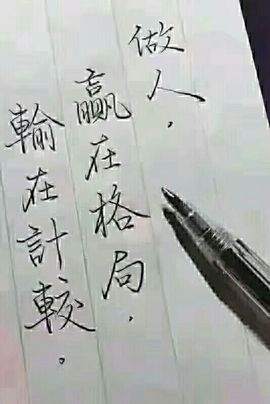 做人，
贏在格局，
輸在計較。